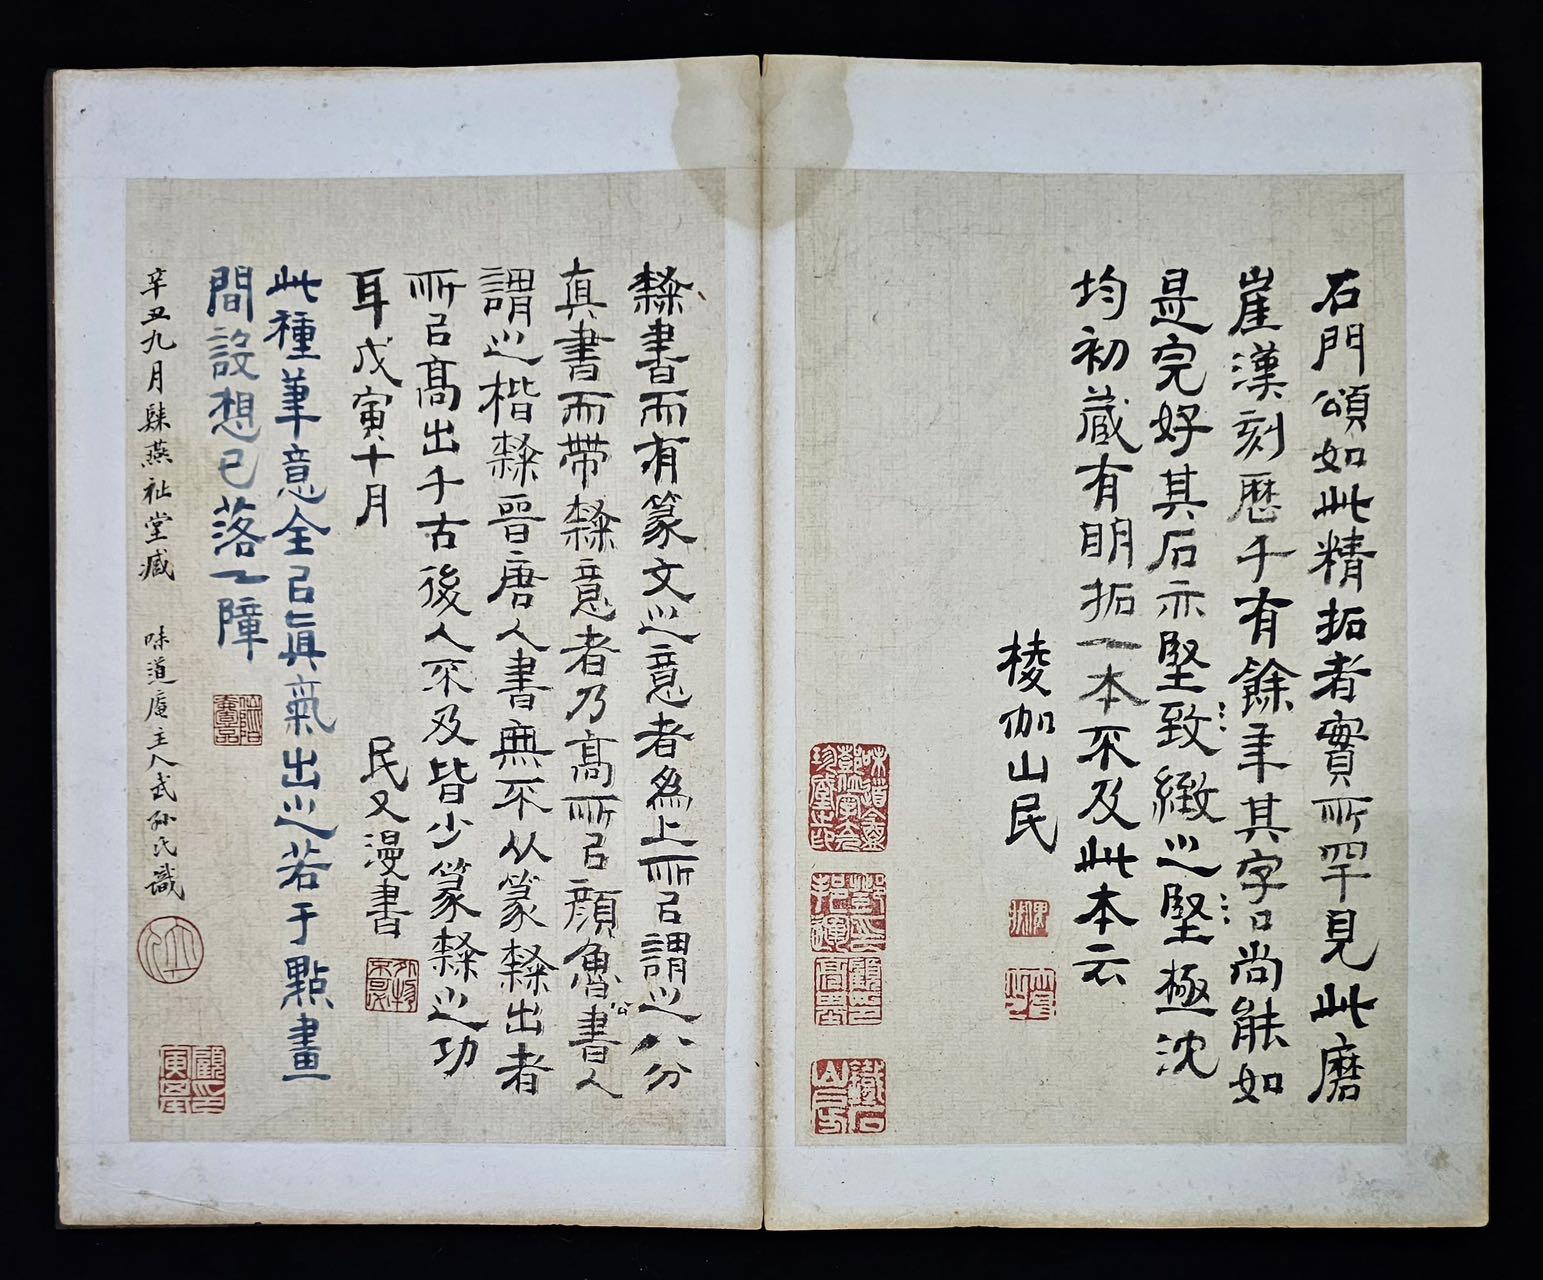 石門頌如此精拓者實所罕見此磨
崖漢刻歷千有餘年其字口尚能如
是完好其石亦堅致緻之堅極沈
均初藏有明拓一本不及此本云
棱伽山民
隸書而有篆文之意者為上所㠯謂之八分
真書而帶隸意者乃高所㠯顏魯書人
謂之楷隸晉唐人書無不从篆隸出者
所㠯高出千古後人不及皆少篆隸之功
耳戊寅十月
民又漫書
此種筆意全㠯眞氣出之若于點畫
間設想已落乙障
辛丑九月肄燕祉堂臧 味道廬主人武孫氏識